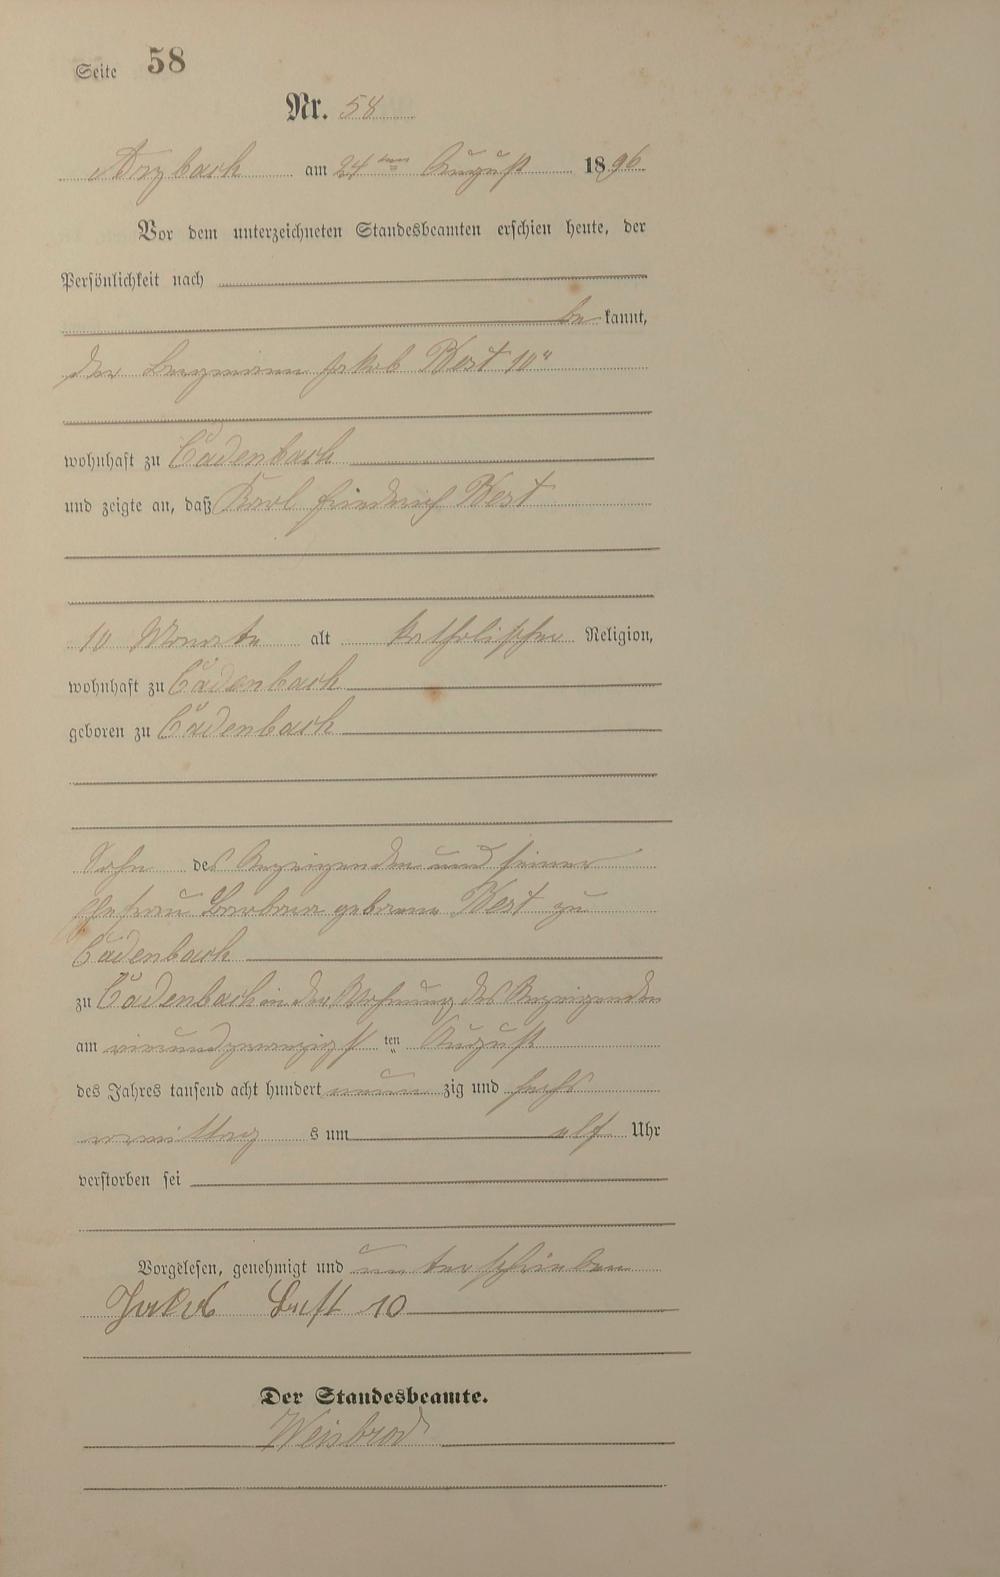 Seite 58
Nr. 58
Arzbach am 24ten August 1896
Vor dem unterzeichneten Standesbeamten erschien heute, der
Persönlichkeit nach
be kannt,
der Bergmann Jakob Best 10"
wohnhaft zu Cadenbach
und zeigte an, daß Karl Friedrich Best
10 Monate alt katholischer Religion,
wohnhaft zu Cadenbach
geboren zu Cadenbach
Sohn des Anzeigenden und seiner
Ehefrau Barbara geborene Best zu
Cadenbach
zu Cadenbach in der Wohnung des Anzeigenden
am vierundzwanzigsten August
des Jahres tausend acht hundert neun zig und sechs
vormittags um elf Uhr
verstorben sei
Vorgelesen, genehmigt und unterschrieben
Jakob Best 10
Der Standesbeamte.
Weisbrod